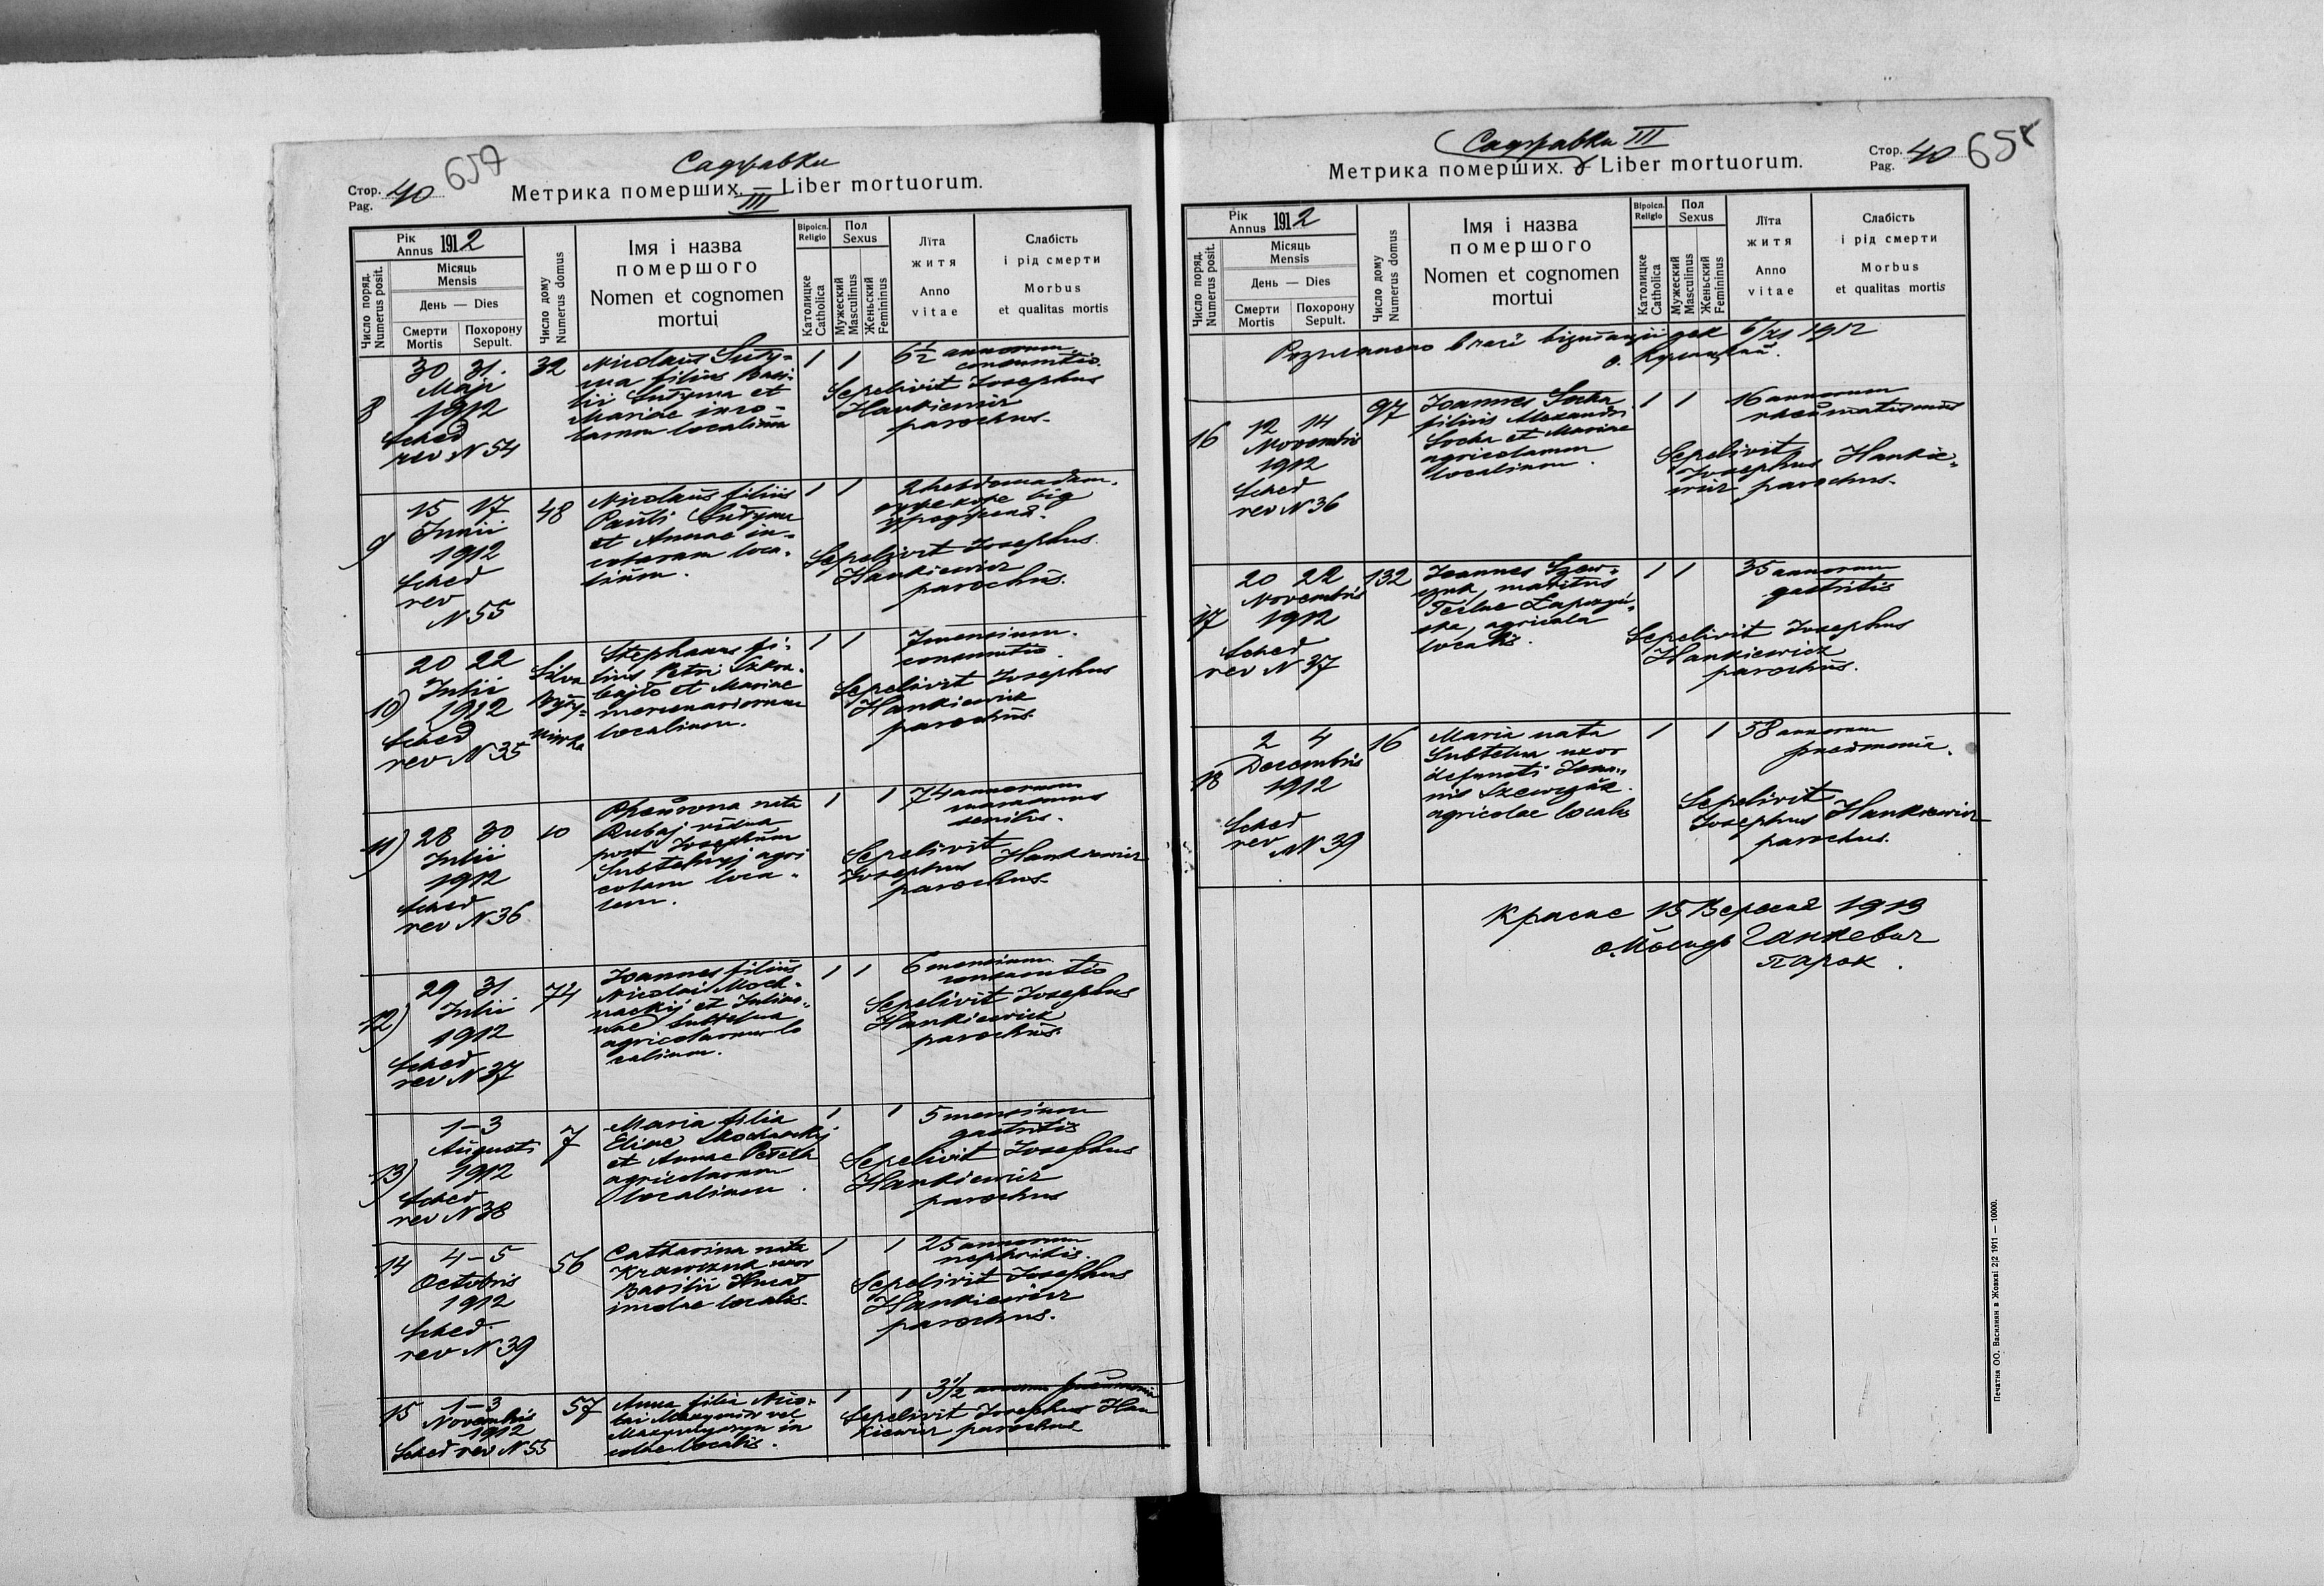 657
Садравки
Стор. 40
Pag.
Метрика померших. — Liber mortuorum.
III
Рік
Annus 1912
Місяць
Mensis
День — Dies
Число поряд.
Numerus posit.
Смерти
Mortis
Похорону
Sepult.
Число дому
Numerus domus
Імя і назва
помершого
Nomen et cognomen
mortui
Віроісп.
Religio
Католицке
Catholica
Пол
Sexus
Мужеский
Masculinus
Женьский
Femininus
Лїта
житя
Anno
vitae
Слабість
і рід смерти
Morbus
et qualitas mortis
8
30 31.
Maji
1912
Sched
rev N 54
32
Nicolaus
filius Basi-
lii et
Mariae inco-
larum localium
1 1
6 1/2 annorum
consumtio.
Sepelivit Josephus
Hankiewicz
parochus.
9
15 17
Junii
1912
Sched
rev
N 55
48
Nicolaus filius
Pauli
et Annae in-
colarum loca-
lium.
1 1
2 hebdomadum.
від
уродженя.
Sepelivit Josephus
Hankiewicz
parochus.
10)
20 22
Julii
1912
Sched
rev N 35
Silva
Stephanus fi-
lius Petri
et Mariae
mercenariorum
localium.
1 1
7 mensium.
consumtio.
Sepelivit Josephus
Hankiewicz
parochus.
11)
28 30
Julii
1912
Sched
rev N 36
10
nata
Dubaj vidua
post Josephum
Subtelnyj agri
colam loca-
lem.
1 1
74 annorum
marasmus
senilis.
Sepelivit
Josephus Hankiewicz
parochus.
12)
29 31
Julii
1912
Sched
rev N 37
74
Joannes filius
Nicolai Moch-
nackij et Julian-
nae Subtelna
agricolarum lo
calium.
1 1
6 mensium
consumtio
Sepelivit Josephus
Hankiewicz
parochus.
13)
1 – 3
Augusti
1912
Sched
rev N 38
7
Maria filia
Eliae Mochnackij
et Annae
agricolarum
localium.
1 1
5 mensium
gastritis
Sepelivit Josephus
Hankiewicz
parochus
14
4 – 5
Octobris
1912
Sched.
rev N 39
56
Catharina nata
Krawczuk uxor
Basilii
incolae localis.
1 1
25 annorum
nephritis.
Sepelivit Josephus
Hankiewicz
parochus.
15
1 – 3
Novembris
1912
Sched rev N 55
57
Anna filia Nico-
lai vel
in
colae localis.
1 1
3 1/2 annorum pneumonia
Sepelivit Josephus Han
kiewicz parochus
Садравки III
Метрика померших. — Liber mortuorum.
Стор. 40
Pag.
658
Рік
Annus 1912
Місяць
Mensis
День — Dies
Число поряд.
Numerus posit.
Смерти
Mortis
Похорону
Sepult.
Число дому
Numerus domus
Імя і назва
помершого
Nomen et cognomen
mortui
Віроісп.
Religio
Католицке
Catholica
Пол
Sexus
Мужеский
Masculinus
Женьский
Femininus
Лїта
житя
Anno
vitae
Слабість
і рід смерти
Morbus
et qualitas mortis
в часї візитациї дек 6/XI 1912
о.
16
12 14
Novembris
1912
Sched
rev N 36
97
Joannes Socha
filius Alexandri
Socha et Mariae
agricolarum
localium.
1 1
16 annorum
rheumatismus
Sepelivit
Josephus Hankie-
wicz parochus.
17
20 22
Novembris
1912
Sched
rev N 37
132
Joannes Szew-
czuk, maritus
Teclae
agricola
localis.
1 1
35 annorum
gastritis
Sepelivit Josephus
Hankiewicz
parochus.
18
2 4
Decembris
1912
Sched
rev N 39
16
Maria nata
Subtelna uxor
defuncti Joan-
nis Szewczuk.
agricolae localis
1 1
58 annorum
pneumonia.
Sepelivit
Josephus Hankiewicz
parochus.
Красне 15 Вересня 1913
о. Йосиф Ганкевич
парох.
Печатня ОО. Василиян в Жовкві 2|2 1911 — 10000.